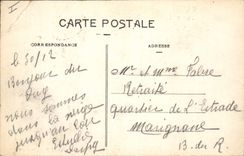 CARTE POSTALE
CORRESPONDANCE
ADRESSE
Bonjour du
nous sommes
dans la neige
jusqu'au cou
Mr et Mme Fabre
Retraité
quartier de L'Estrade
Marignane
B. du R.